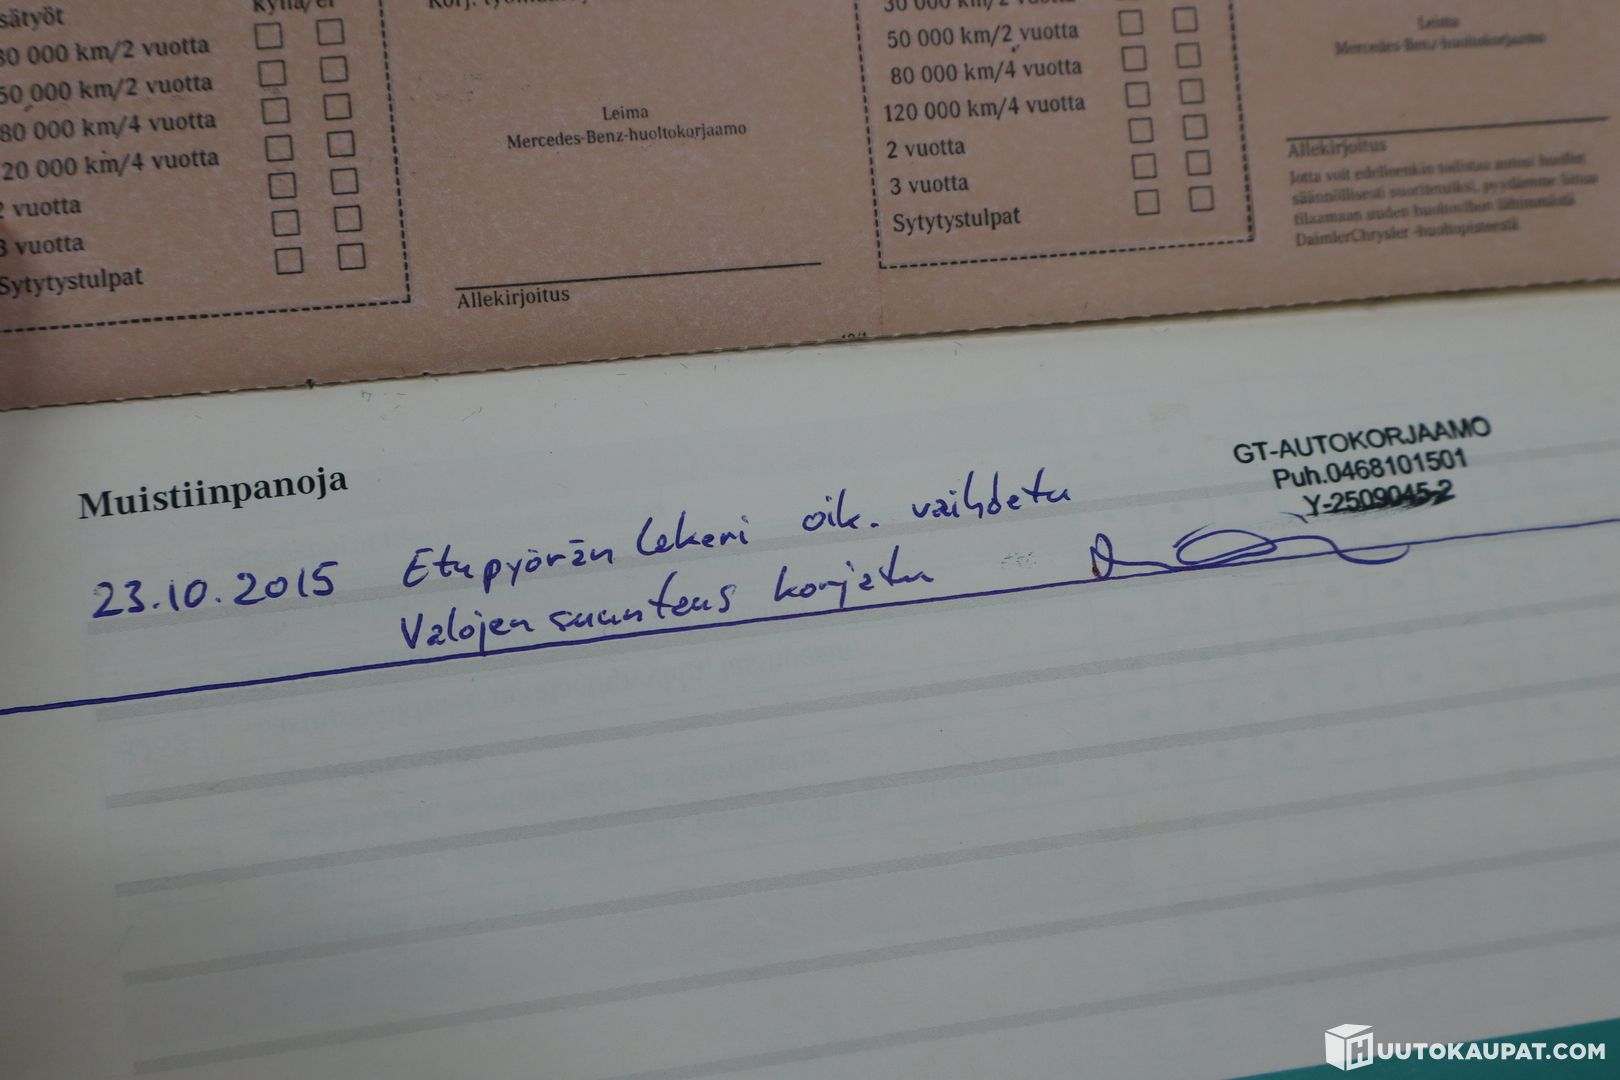 sätyöt
kyllä/ei
30 000 km/2 vuotta
50 000 km/2 vuotta
80 000 km/4 vuotta
120 000 km/4 vuotta
2 vuotta
3 vuotta
Sytytystulpat
Leima
Mercedes-Benz-huoltokorjaamo
Allekirjoitus
30 000 km/2 vuotta
50 000 km/2 vuotta
80 000 km/4 vuotta
120 000 km/4 vuotta
2 vuotta
3 vuotta
Sytytystulpat
Leima
Mercedes-Benz-huoltokorjaamo
Allekirjoitus
Jotta voit edelleenkin todistaa autosi huollot
säännöllisesti suoritetuiksi, pyydämme Sinua
tilaamaan uuden huoltovihon lähimmästä
DaimlerChrysler -huoltopisteestä
Muistiinpanoja
GT-AUTOKORJAAMO
Puh.0468101501
Y-2509045-2
23.10.2015 Etupyörän lekeri oik. vaihdetu
Valojen suuntaus korjatu
HUUTOKAUPAT.COM